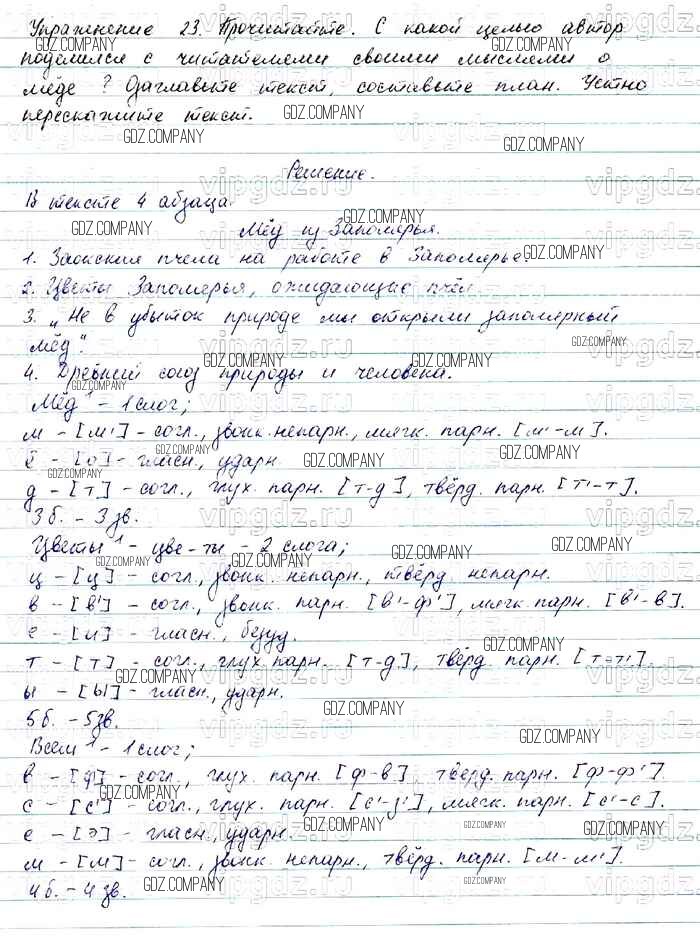 Упражнение 23. Прочитайте. С какой целью автор
поделился с читателями своими мыслями о
мёде? Озаглавьте текст, составьте план. Устно
перескажите текст.
Решение.
В тексте 4 абзаца.
Мёд из Заполярья.
1. Заокские пчёлы на работе в Заполярье.
2. Цветы Заполярья, ожидающие пчёл.
3. „Не в убыток природе мы открыли заполярный
мёд".
4. Древний союз природы и человека.
Мёд¹ - 1 слог;
м - [м'] - согл., звонк. непарн., мягк. парн. [м'-м].
ё - [о] - гласн., ударн.
д - [т] - согл., глух. парн. [т-д], твёрд. парн. [т'-т].
3 б. - 3 зв.
Цветы¹ - цве-ты - 2 слога;
ц - [ц] - согл., звонк. непарн., твёрд. непарн.
в - [в'] - согл., звонк. парн. [в'-ф'], мягк. парн. [в'-в].
е - [и] - гласн., безуд.
т - [т] - согл., глух. парн. [т-д], твёрд. парн. [т-т'].
ы - [ы] - гласн., ударн.
5 б. - 5 зв.
Всем¹ - 1 слог;
в - [ф] - согл., глух. парн. [ф-в], твёрд. парн. [ф-ф'].
с - [с'] - согл., глух. парн. [с'-з'], мягк. парн. [с'-с].
е - [э] - гласн., ударн.
м - [м] - согл., звонк. непарн., твёрд. парн. [м-м'].
4 б. - 4 зв.